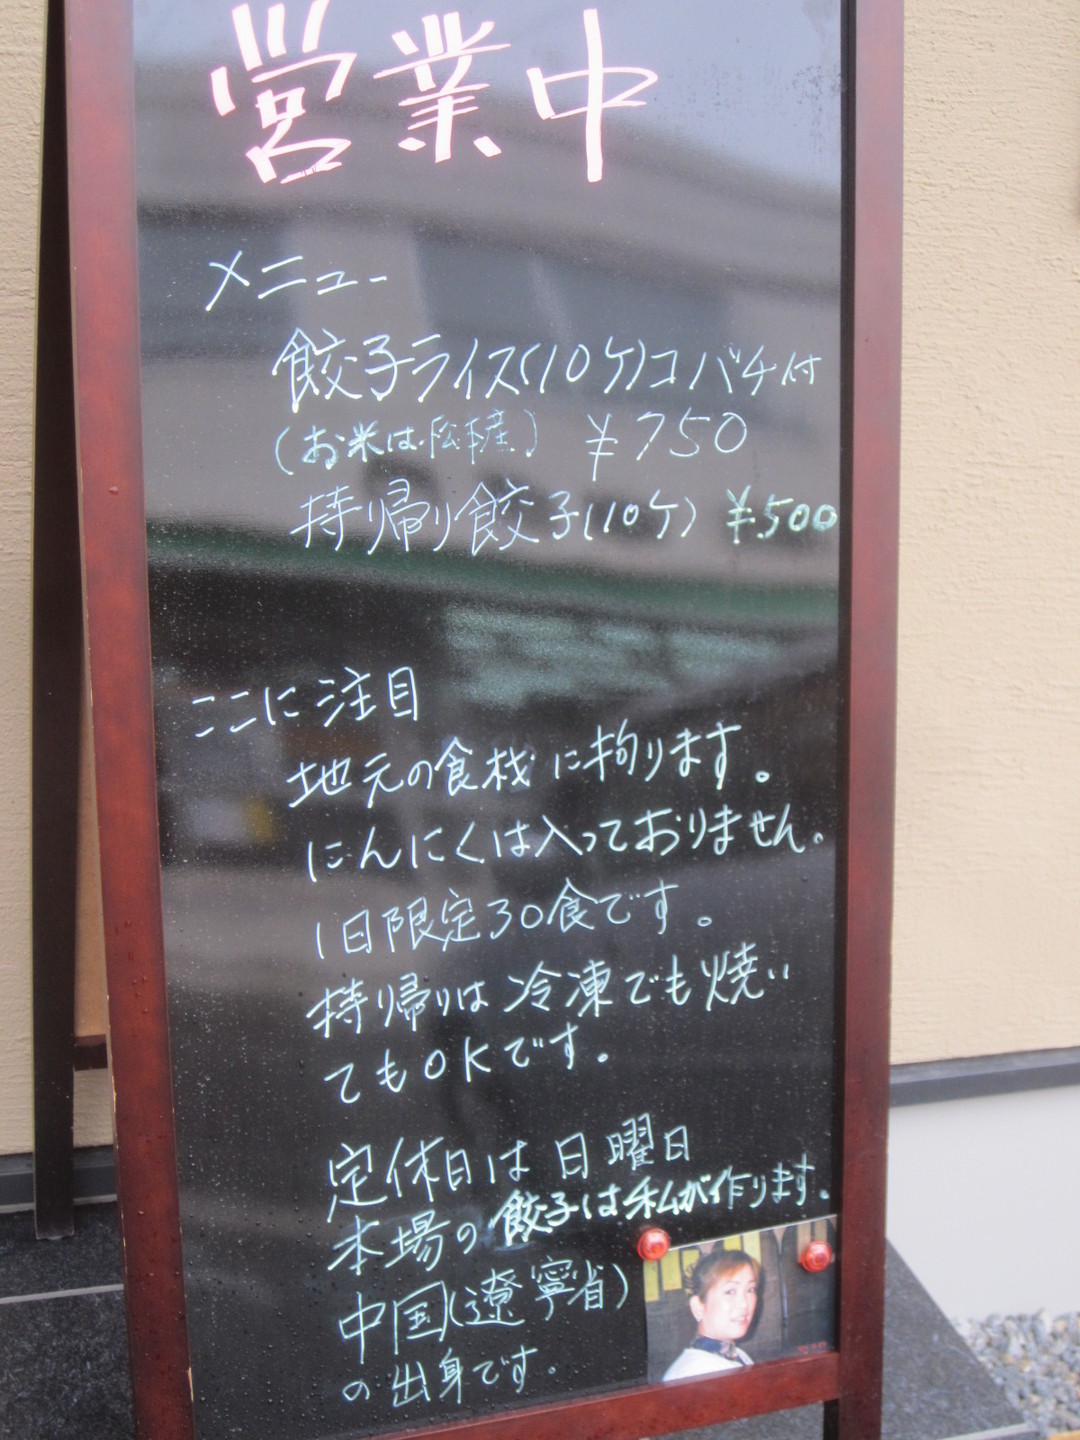 営業中
メニュー
餃子ライス(10ケ)コバチ付
(お米は松本産) ¥750
持り帰り餃子(10ケ) ¥500
ここに注目
地元の食材に拘ります。
にんにくは入っておりません。
1日限定30食です。
持り帰りは冷凍でも焼い
てもOKです。
定休日は日曜日
本場の餃子は私が作ります。
中国(遼寧省)
の出身です。